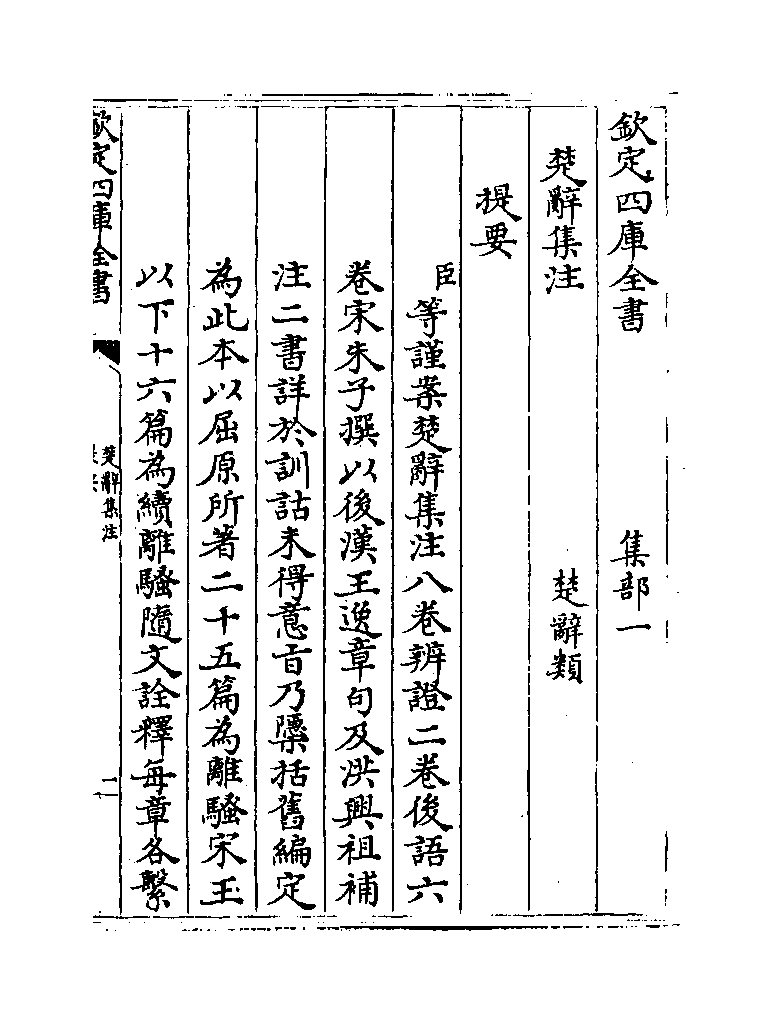 欽定四庫全書　集部一
楚辭集注　楚辭類
提要
臣等謹案楚辭集注八卷辨證二卷後語六
卷宋朱子撰以後漢王逸章句及洪興祖補
注二書詳於訓詁未得意旨乃檃括舊編定
為此本以屈原所著二十五篇為離騷宋玉
以下十六篇為續離騷隨文詮釋每章各繫
欽定四庫全書
楚辭集注